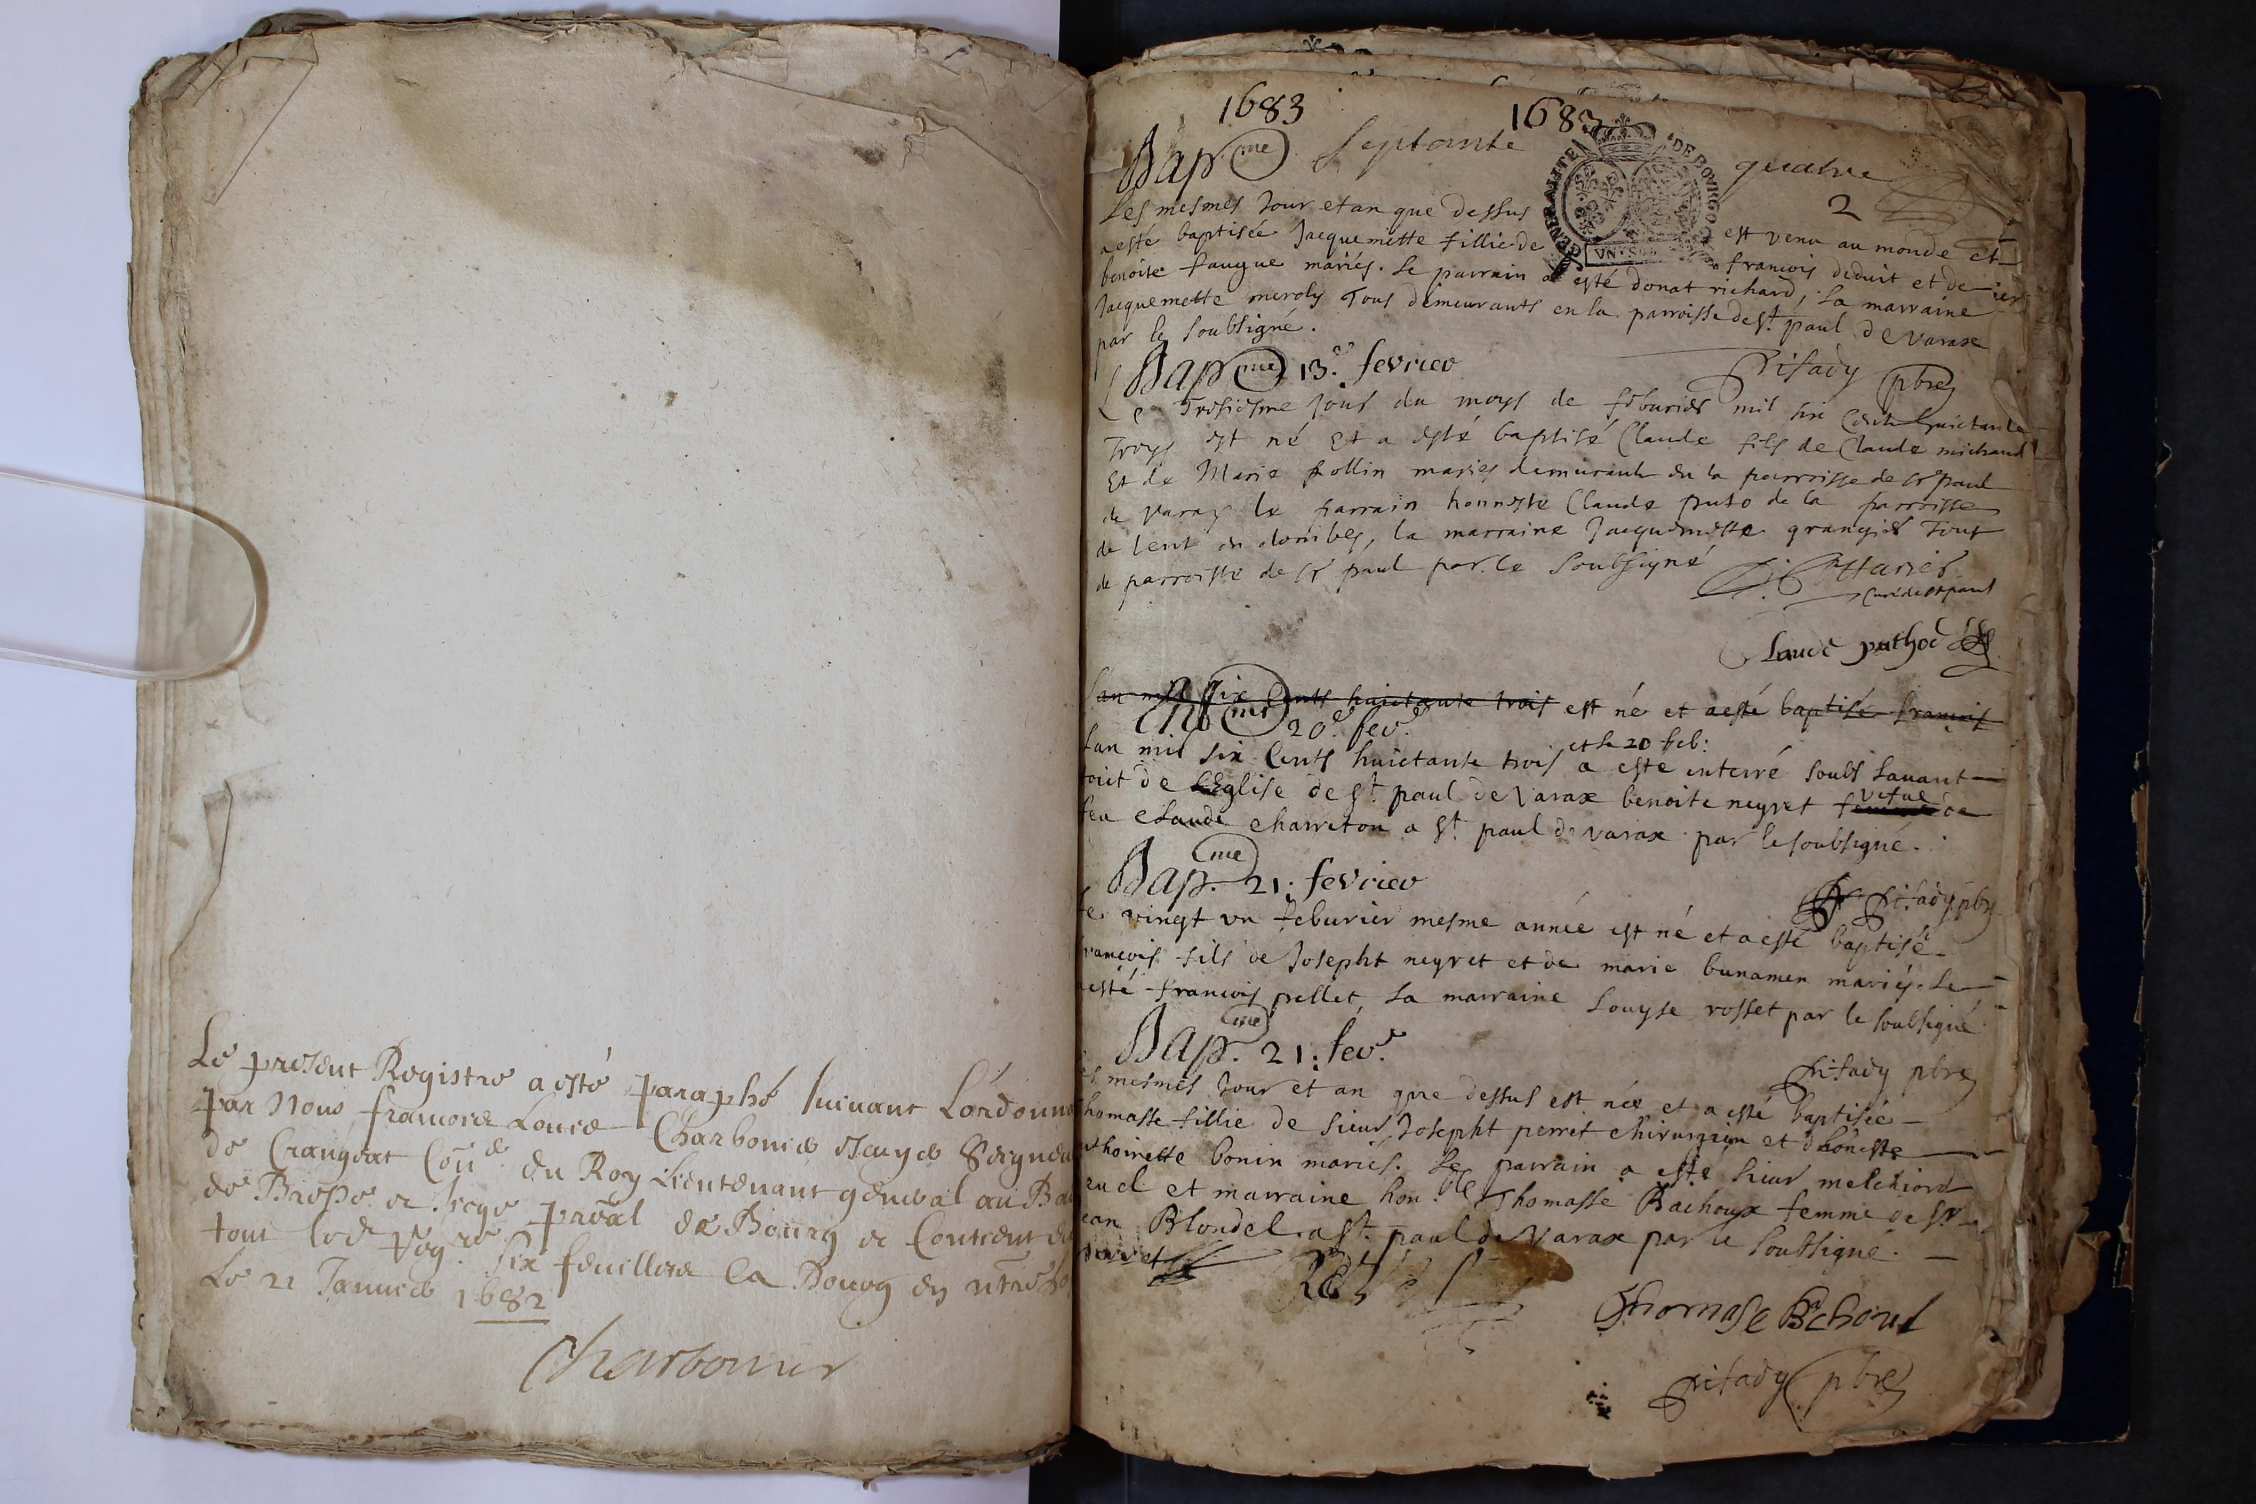 Le present Registre a esté paraphé suivant L'ordonn
par Nous francois Louis Charbonnier Escuyer Seigneu
de Crangeat Con.er du Roy Lieutenant general au Ba
de Bresse et siege pral de Bourg et contient en
tout six feuilletz a Bourg en
Le 21 Janvier 1682
Charbonnier
1683 1683
Bap.me Septante quatre
2
GENERALITE DE BOURGO
VN S
Les mesmes Jour et an que dessus est venu au monde et
a esté baptisée Jacquemette fillie de francois deduit et de
benoite faugue mariés. Le parrain a esté donat richard, La marraine
Jacquemette meroly Tous demeurants en la parroisse de st. paul de Varax
par le soubsigné.
pitady pbre
Bap.me 13.e fevrier
Le Tresiesme Jour du moys de feburier mil six cent huictante
troys est né et a esté baptisé Claude fils de Claude michaud
Et de Marie pollin mariés demeurant en la parroisse de st paul
de Varax le parrain honneste Claude puto de la parroisse
de lent en dombes, la marraine Jacquemette grangier Tout
de parroisse de st paul par le Soubsigné
Curé de st paul
Claude puthod
Lan mil six cents huictante trois est né et a esté baptisé francois
Ent.me 20.e fev.r
et le 20 feb:
Lan mil six cents huictante trois a esté enterré soubs Lavant
toict de LEglise de st. paul de Varax benoite neyret vefve de
feu Claude charreton a st. paul de Varax par le soubsigné.
pitady pbre
Bap.me 21: fevrier
Le vingt un feburier mesme année est né et a esté baptisé
francois fils de Josepht neyret et de marie bunamen mariés. Le
a esté francois pellet, La marraine Louyse rosset par le soubsigné
pitady pbre
Bap.me 21: fev.r
Les mesmes Jour et an que dessus est née et a esté baptisée
thomasse fillie de sieur Josepht perret chirurgien et dhoneste
anthoinette bonin mariés. Le parrain a esté sieur melchiord
et marraine hon.ble Thomasse Bachoux femme de Sr
Jean Blondel a st. paul de Varax par le soubsigné.
perret
Thomase Bachoul
pitady pbre